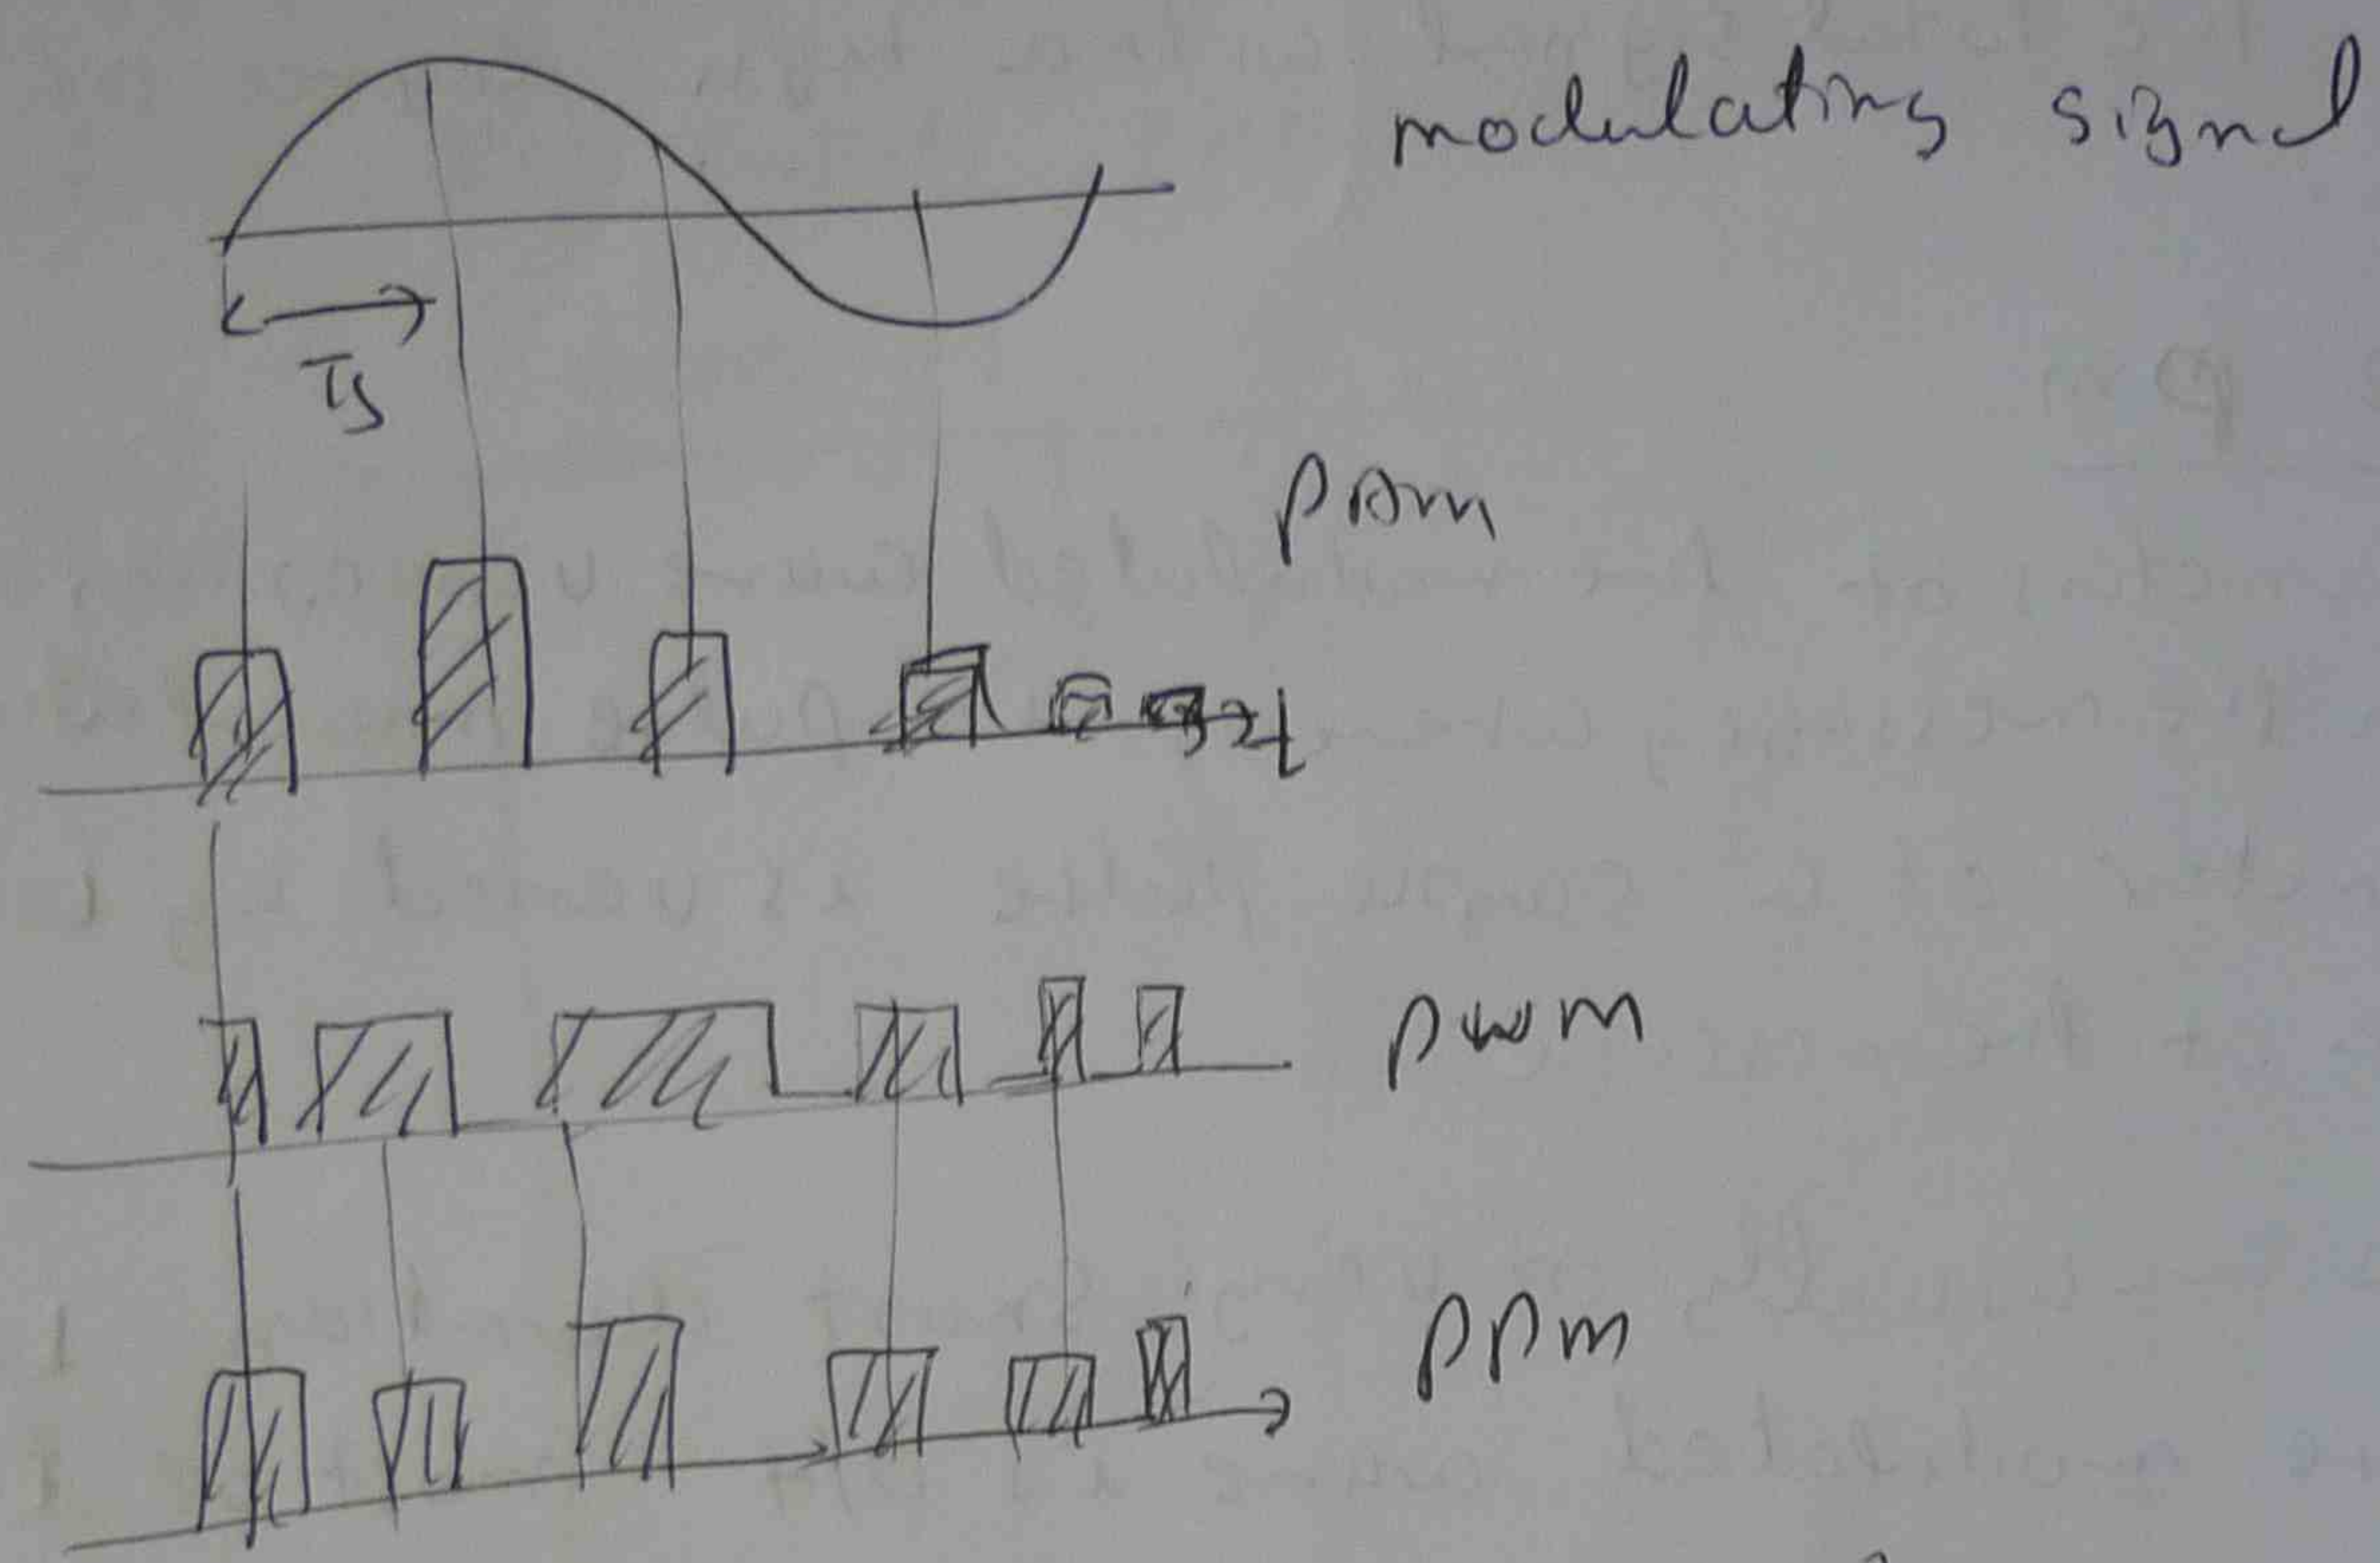 modulating signal
Ts
PAM
t
PWM
PPM